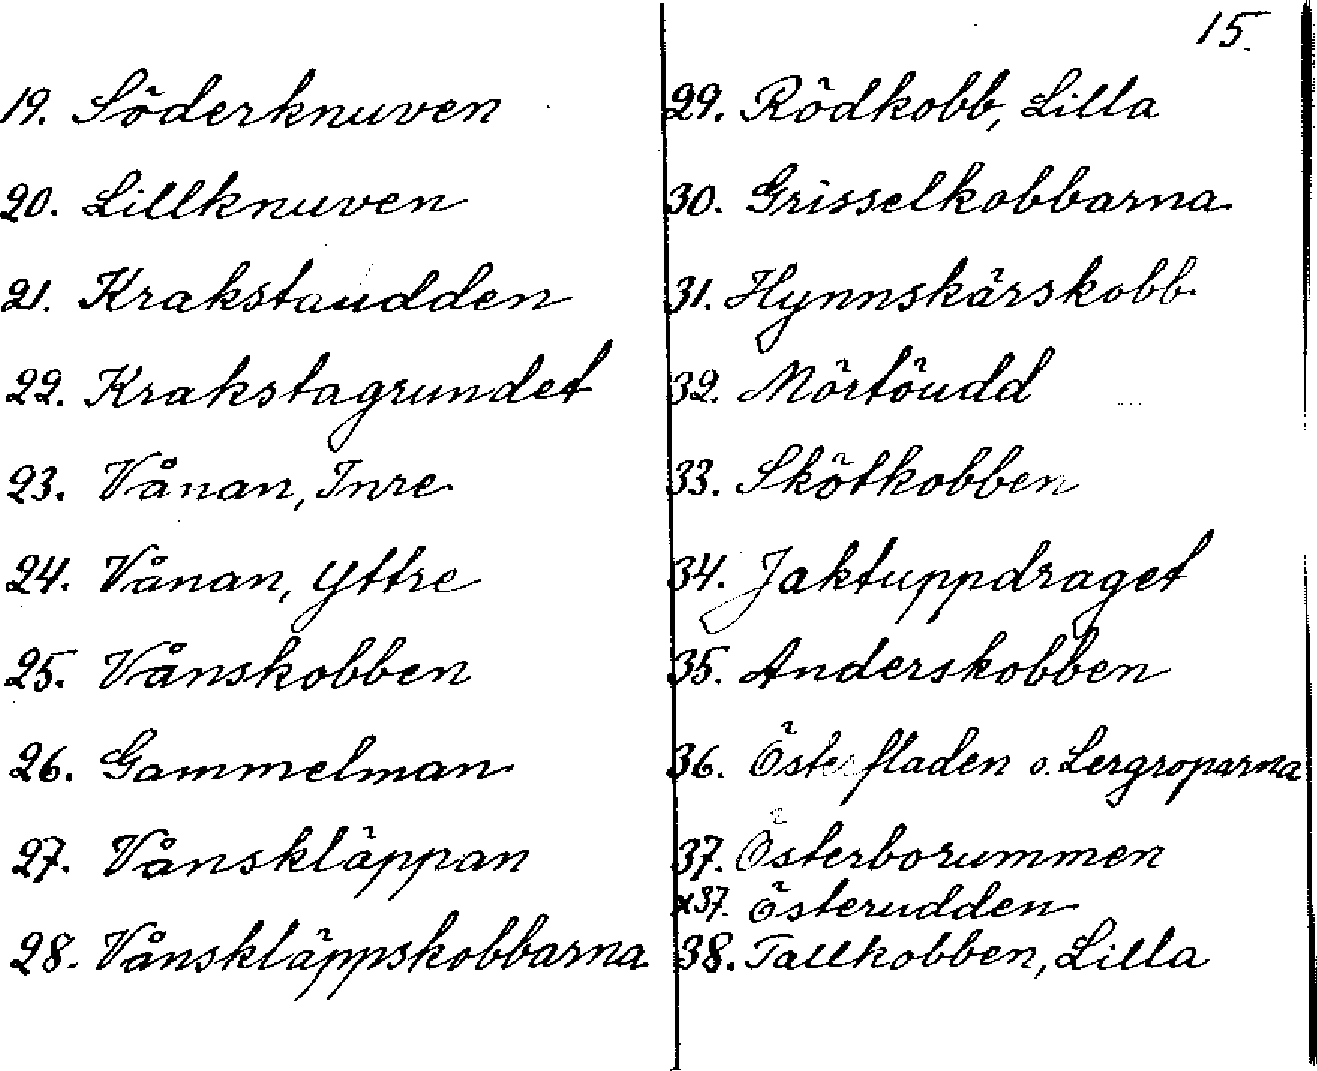 15.
19. Söderknuven
20. Lillknuven
21. Krakstaudden
22. Krakstagrundet
23. Vånan, Inre
24. Vånan, Yttre
25. Vånskobben
26. Gammelman
27. Vånskläppan
28. Vånskläppskobbarna
29. Rödkobb, Lilla
30. Grisselkobbarna
31. Hynnskärskobb
32. Mörtöudd
33. Skötkobben
34. Jaktuppdraget
35. Anderskobben
36. Österfladen o. Lergroparna
37. Österborummen
x37. Österudden
38. Tallkobben, Lilla